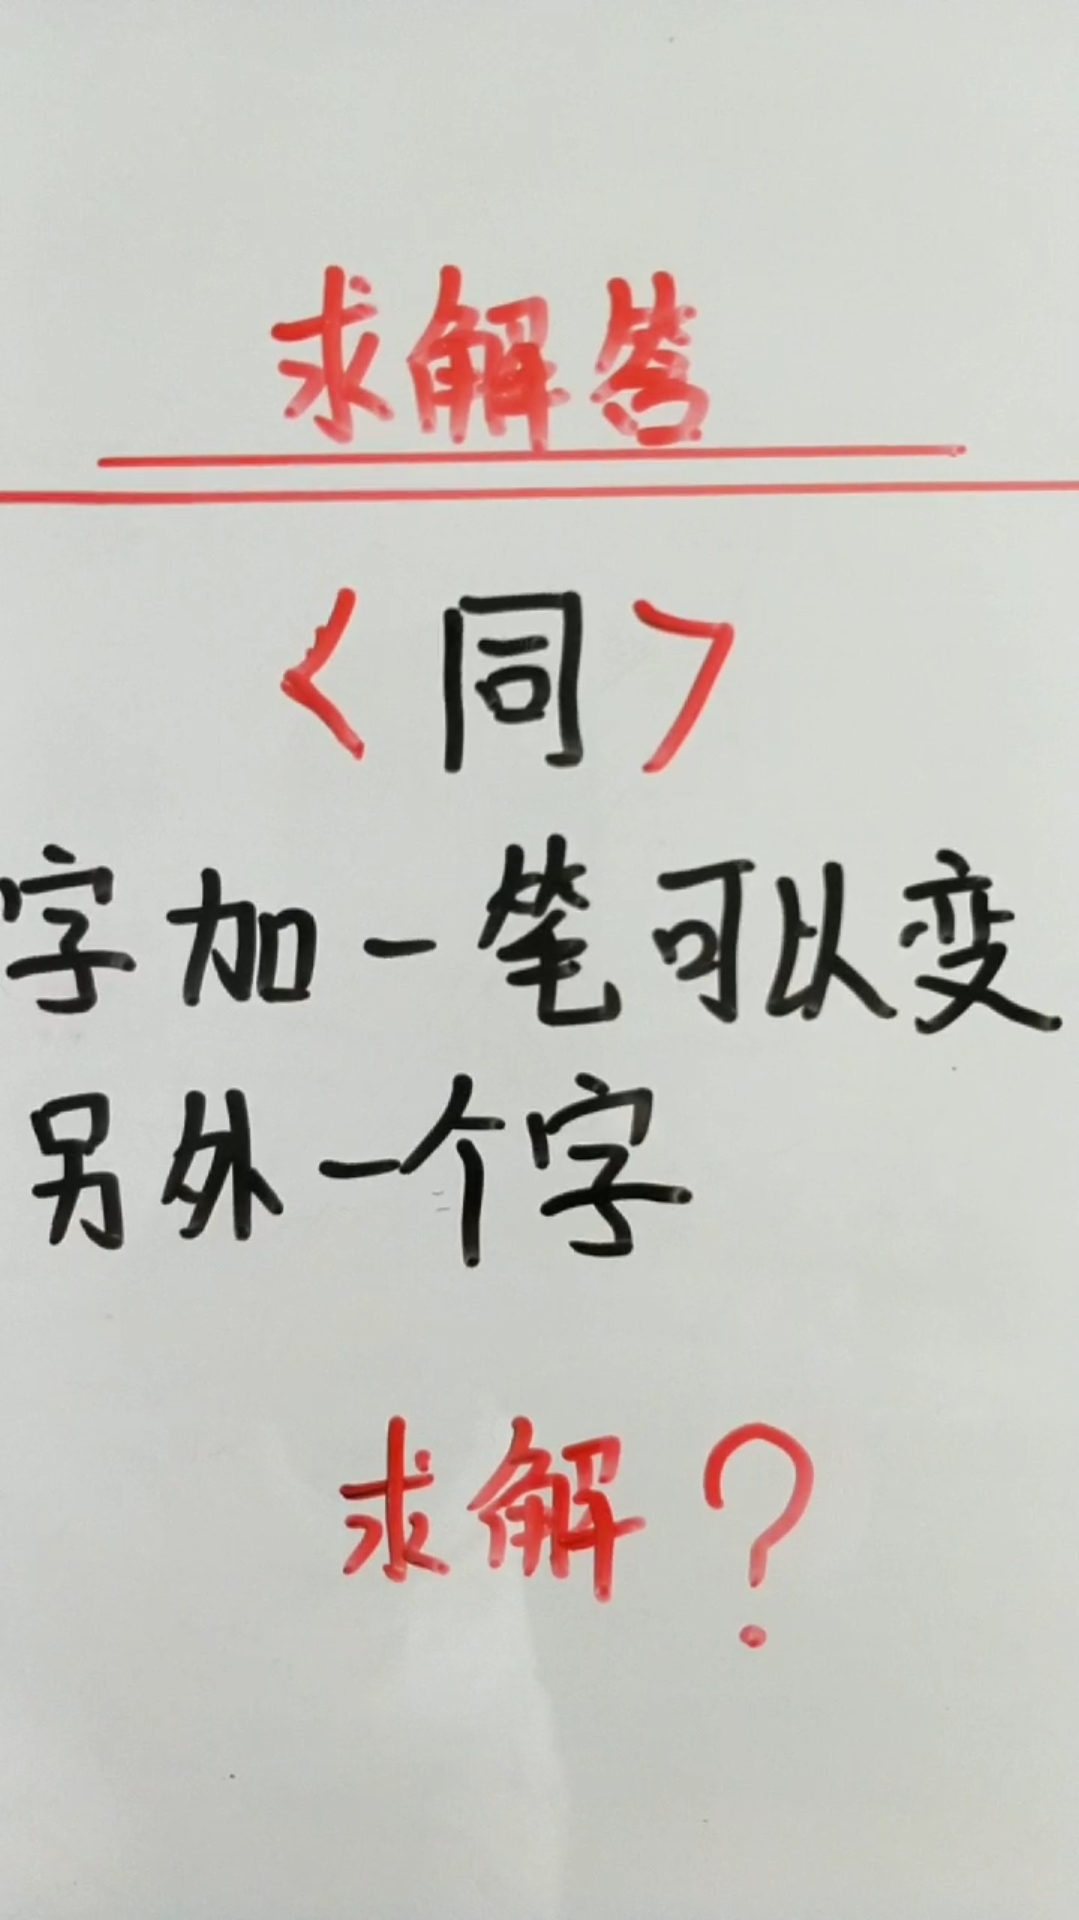 求解答
<同>
字加一笔可以变
另外一个字
求解?